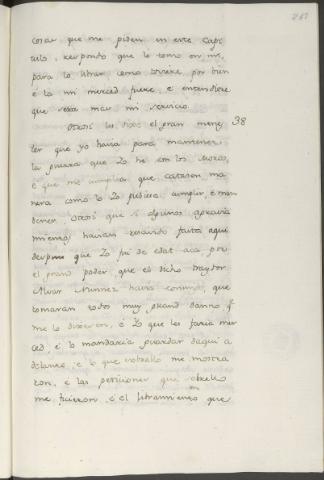 cosas que me piden en este Capi
tulo, respondo que lo tomo en mi,
para lo librar como toviere por bien
é la mi merced fuere, é entendiere
que sera mas mi servicio.
Otrosi les dixe el gran menes 38
ter que Yo havia para mantener
la guerra que Yo he con los Moros,
é que me cumplia que catasen ma
nera como lo Yo pudiese cumplir, é man
tener. Otrosi que si algunos agravia
mientos havian rescivido fasta aqui
despues que Yo fui de edat aca por
el grand poder que el dicho traydor
Alvar Nunnez havia conmigo, que
tomaran todos muy grand danno q.
me lo dixeron, é Yo que les faria mer
ced, é lo mandaria guardar daqui a
delante, é lo que sobrello me mostra
ron, é las peticiones que sobrello
me ficieron, é el libramiento que